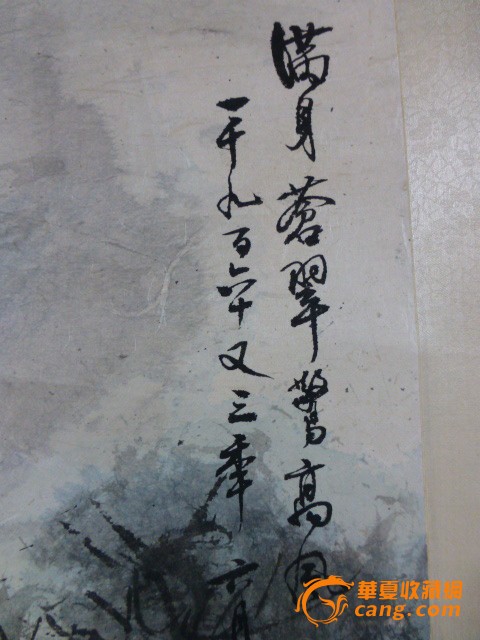 滿身蒼翠驚高風
一千九百六十又三年六月
華夏收藏網
cang.com